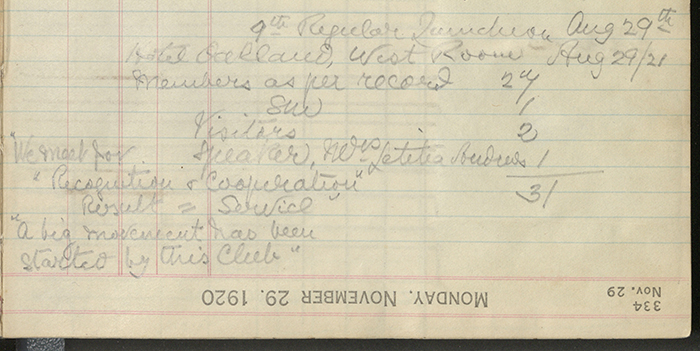 9th Regular Luncheon Aug 29th
Hotel Oakland, West Room Aug 29/21
Members as per record 27
1
Visitors 2
"We meet for Speaker, Mrs Letitia Andrews 1
"Recognition & Cooperation" 31
Result = Service"
"A big movement has been
started by this Club"
MONDAY, NOVEMBER 29, 1920
334
Nov. 29